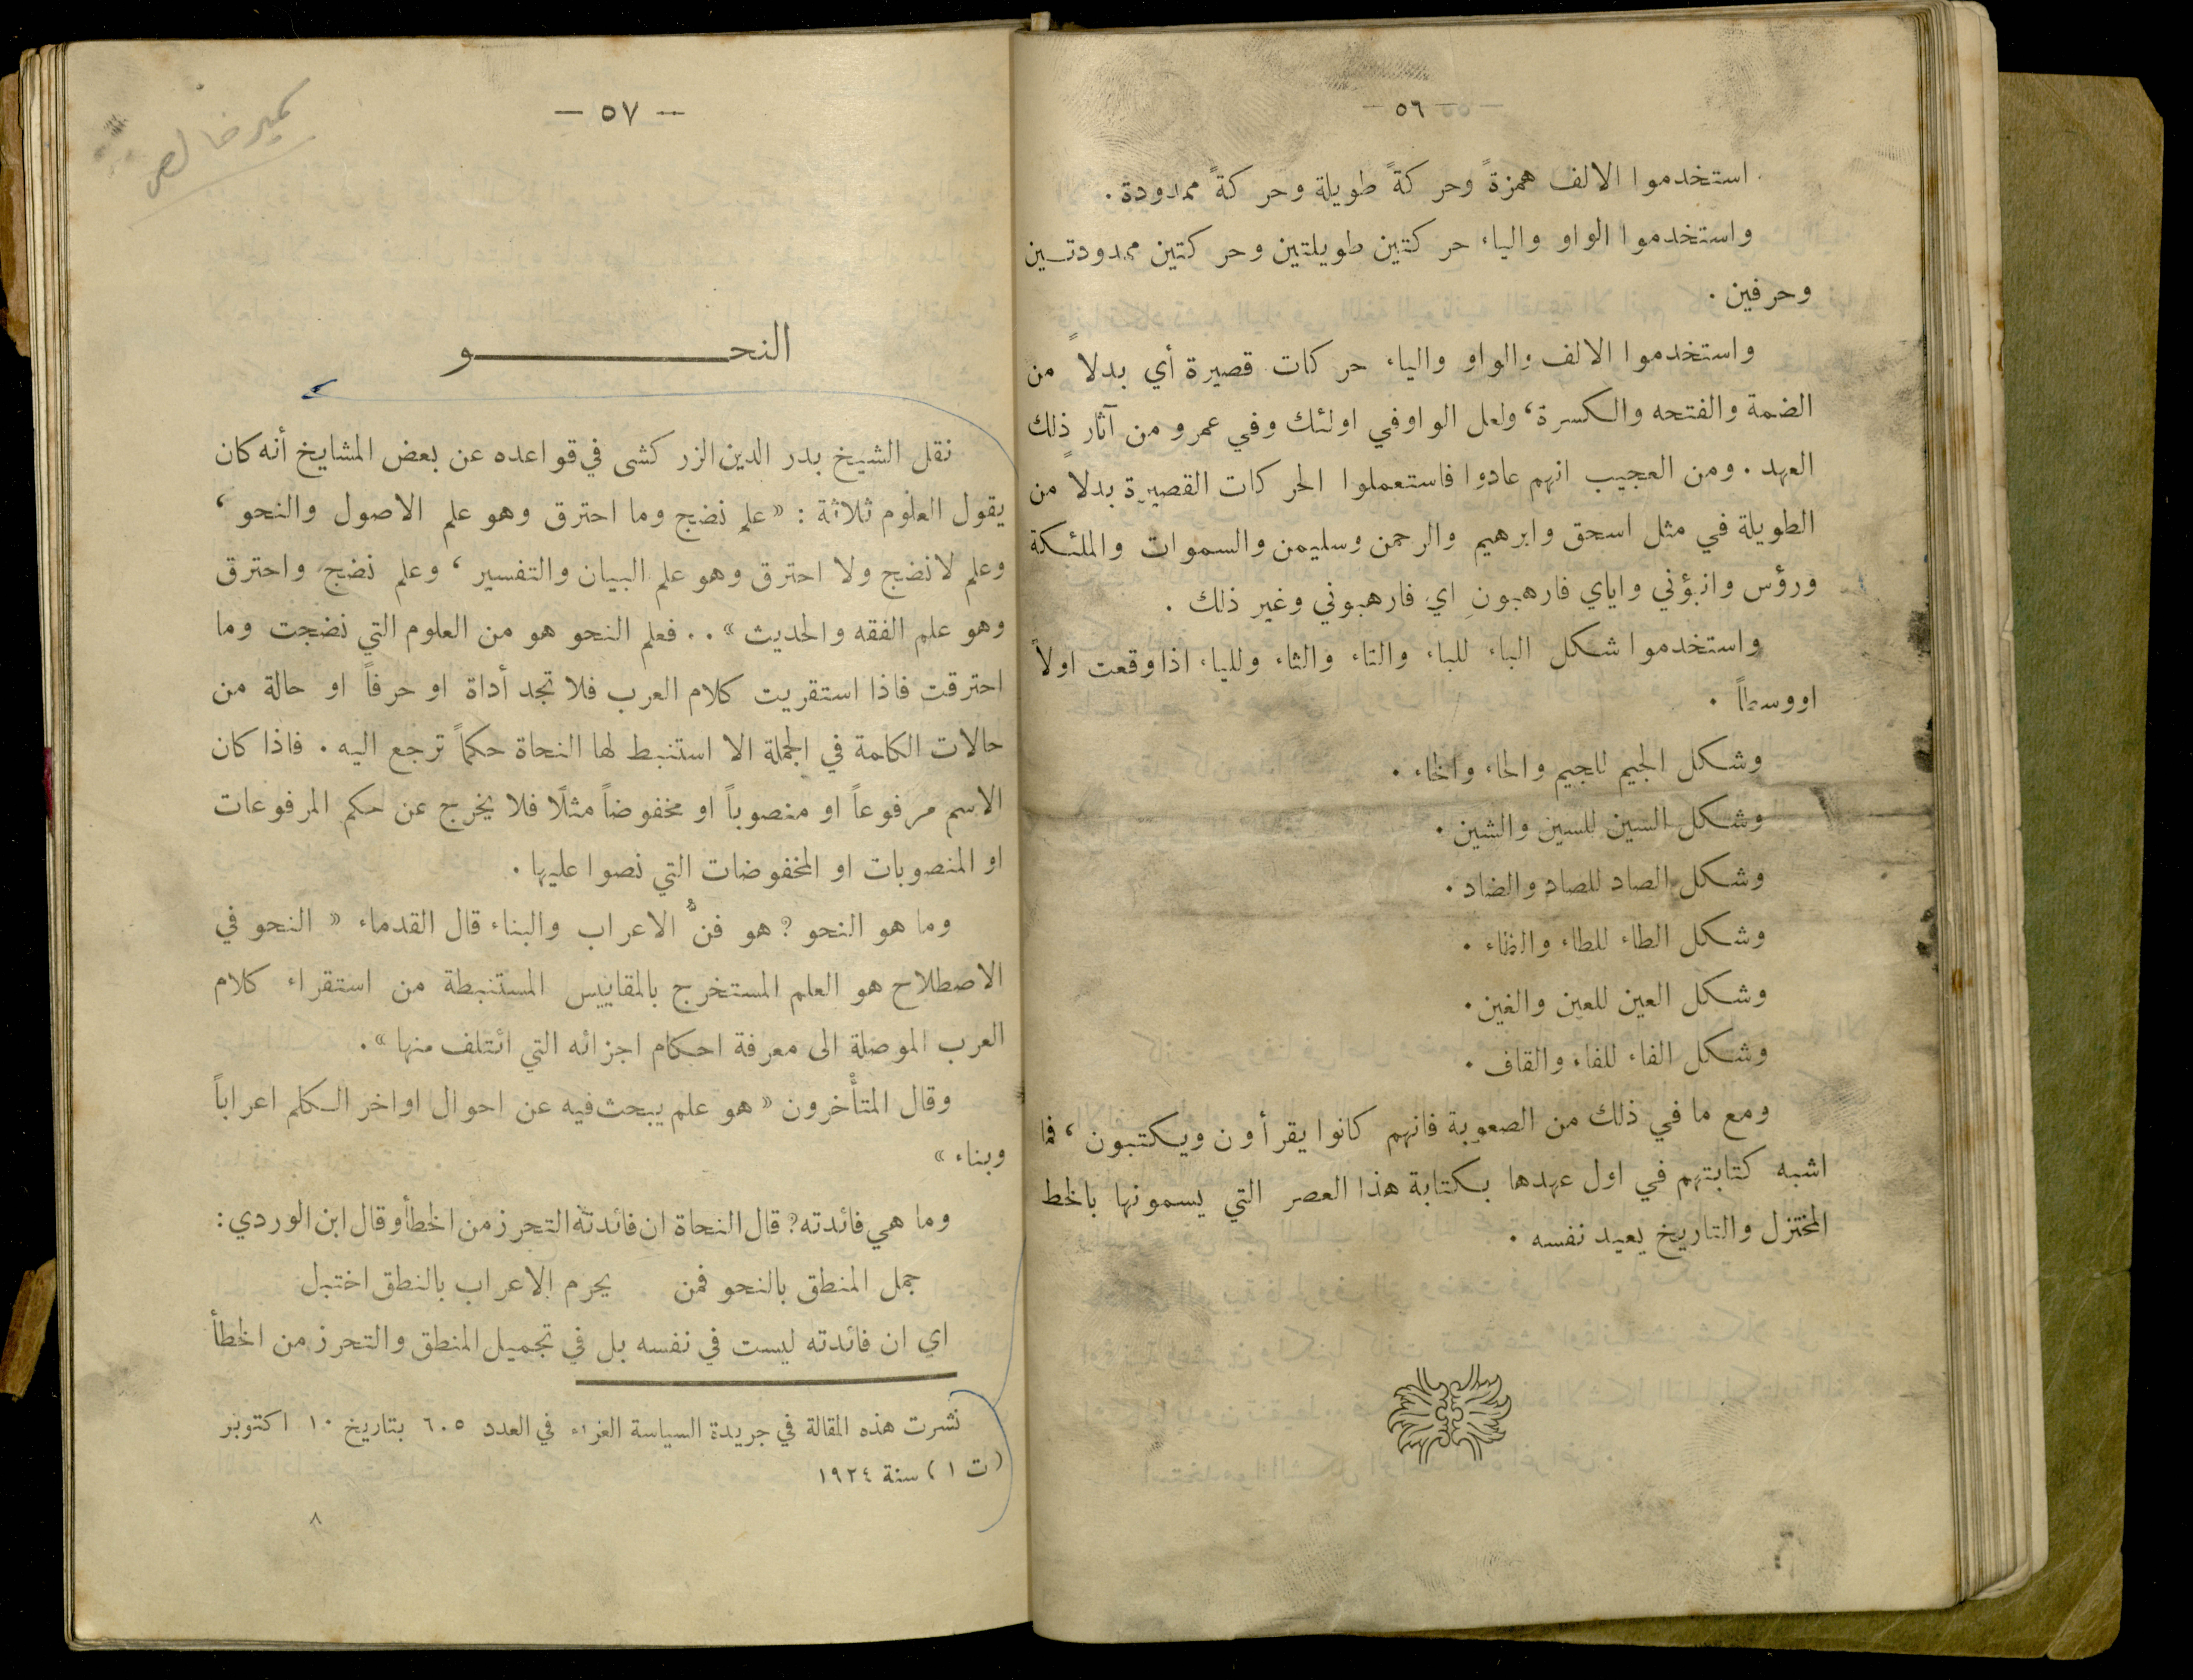 — ٥٦ —
استخدموا الالف همزةً وحركةً طويلة وحركةً ممدودة .
واستخدموا الواو والياء حركتين طويلتين وحركتين ممدودتـين
وحرفين .
واستخدموا الالف والواو والياء حركات قصيرة أي بدلاً من
الضمة والفتحه والكسرة ، ولعل الواو في اولئك وفي عمرو من آثار ذلك
العهد . ومن العجيب انهم عادوا فاستعملوا الحركات القصيرة بدلاً من
الطويلة في مثل اسحق وابرهيم والرحمن وسليمن والسموات والملئكة
ورؤس وانبؤني واياي فارهبونِ اي فارهبوني وغير ذلك .
واستخدموا شكل الباء للباء والتاء والثاء وللياء اذا وقعت اولاً
او وسطاً .
وشكل الجيم للجيم والحاء والخاء .
وشكل السين للسين والشين .
وشكل الصاد للصاد والضاد .
وشكل الطاء للطاء والظاء .
وشكل العين للعين والغين .
وشكل الفاء للفاء والقاف .
ومع ما في ذلك من الصعوبة فانهم كانوا يقرأون ويكتبون ، فما
اشبه كتابتهم في اول عهدها بكتابة هذا العصر التي يسمونها بالخط
المختزل والتاريخ يعيد نفسه .
— ٥٧ —
النحـــــــو
نقل الشيخ بدر الدين الزركشى في قواعده عن بعض المشايخ أنه كان
يقول العلوم ثلاثة : «علم نضج وما احترق وهو علم الاصول والنحو ،
وعلم لا نضج ولا احترق وهو علم البيان والتفسير ، وعلم نضج واحترق
وهو علم الفقه والحديث» .. فعلم النحو هو من العلوم التي نضجت وما
احترقت فاذا استقريت كلام العرب فلا تجد أداة او حرفاً او حالة من
حالات الكلمة في الجملة الا استنبط لها النحاة حكماً ترجع اليه . فاذا كان
الاسم مرفوعاً او منصوباً او مخفوضاً مثلًا فلا يخرج عن حكم المرفوعات
او المنصوبات او المخفوضات التي نصوا عليها .
وما هو النحو ؟ هو فنُّ الاعراب والبناء قال القدماء « النحو في
الاصطلاح هو العلم المستخرج بالمقاييس المستنبطة من استقراء كلام
العرب الموصلة الى معرفة احكام اجزائه التي ائتلف منها » .
وقال المتأخرون « هو علم يبحث فيه عن احوال اواخر الكلم اعراباً
وبناء »
وما هي فائدته ؟ قال النحاة ان فائدته التحرز من الخطأ وقال ابن الوردي :
جمل المنطق بالنحو فمن يحرم الاعراب بالنطق اختبل
اي ان فائدته ليست في نفسه بل في تجميل المنطق والتحرز من الخطأ
نشرت هذه المقالة في جريدة السياسة الغراء في العدد ٦٠٥ بتاريخ ١٠ اكتوبر
(ت ١) سنة ١٩٢٤
٨